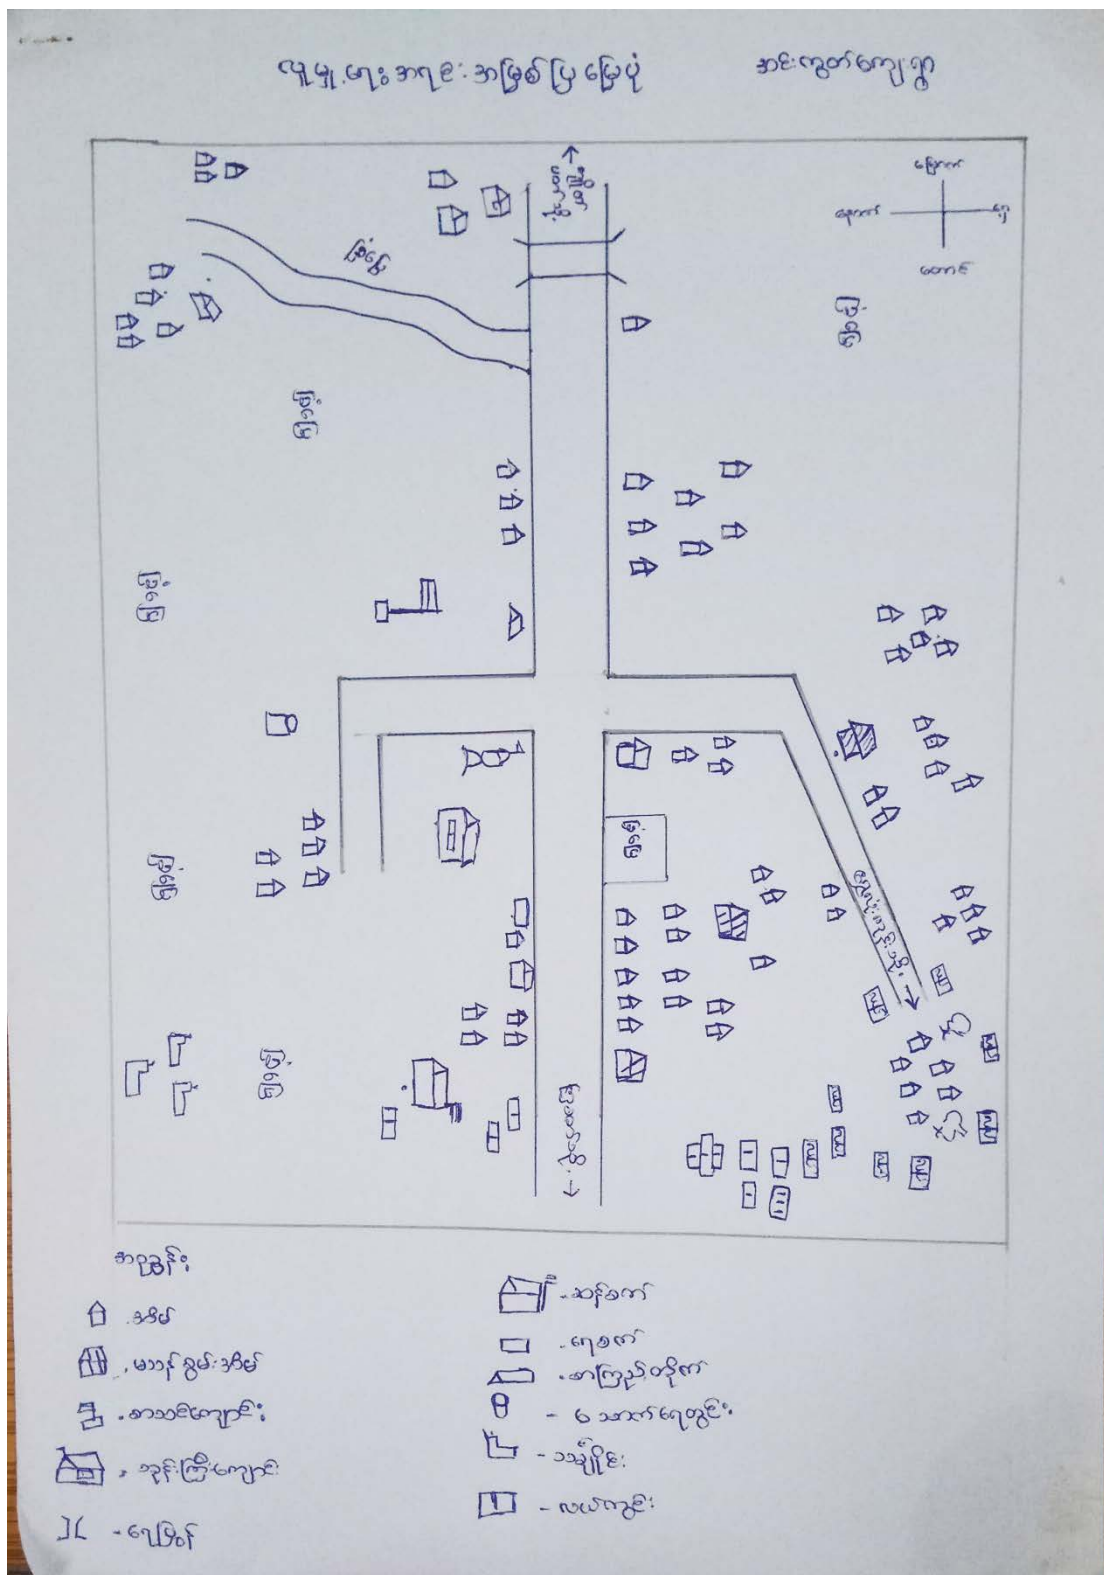 လူမှုရေးအရင်းအမြစ်ပြ မြေပုံ
အင်းကွတ်ကျေးရွာ
မြောက်
အနောက်
တောင်
ခြံမြေ
ခြံမြေ
ခြံမြေ
ခြံမြေ
ခြံမြေ
ခြံမြေ
ခြံမြေ
အညွှန်း
- အိမ်
- မသန်စွမ်းအိမ်
- စာသင်ကျောင်း
- ဘုန်းကြီးကျောင်း
- ရေမြွန်
- ဆန်စက်
- ရေစက်
- စာကြည့်တိုက်
- သောက်ရေတွင်း
- သင်္ချိုင်း
- လယ်ကွင်း